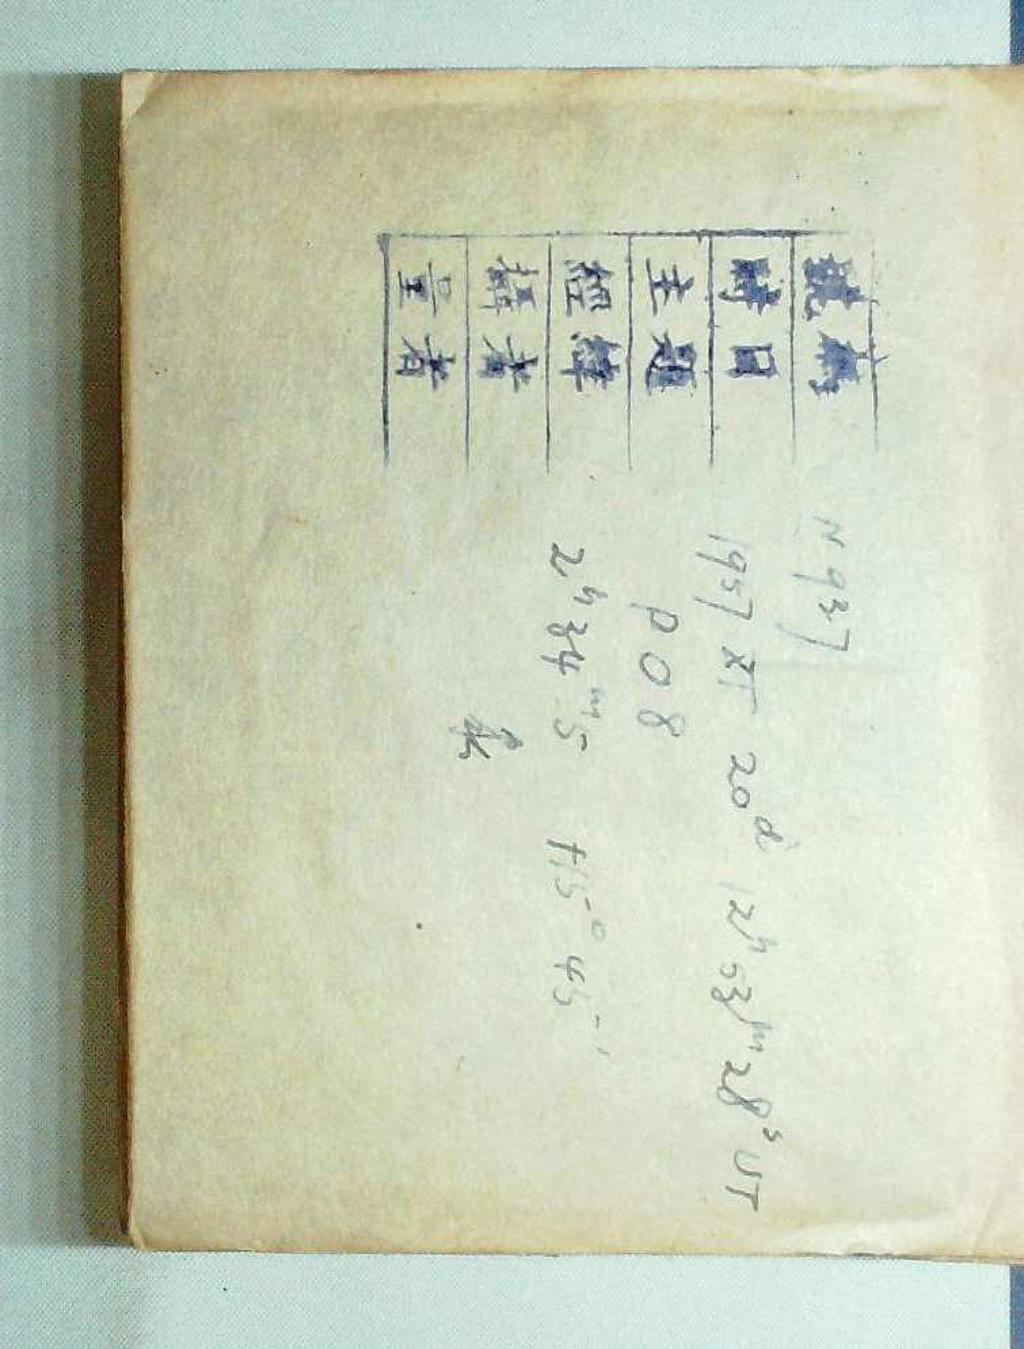 號碼 N 937
時日 1957 XI 20ᵈ 12ʰ 53ᵐ 28ˢ UT
主題 P O 8
經緯 2ʰ 34ᵐ.5 +15° 45'
攝者
量者